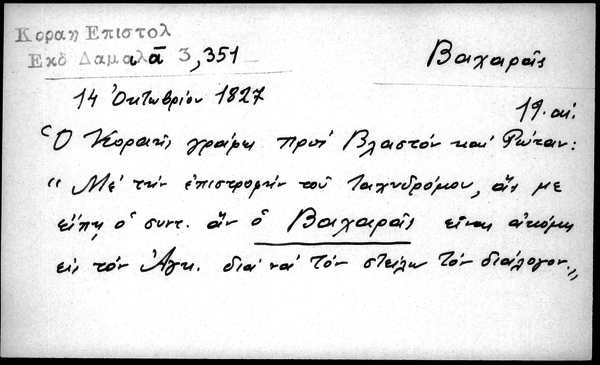 Κοραη Επιστολ
Εκδ Δαμαλα ᾱ 3,351
Βαχαρᾶς
14 Ὀκτωβρίου 1827
19. αἰ.
Ὁ Κοραῆς γράφει πρός Βλαστόν καί Ρώταν:
"Μέ τήν ἐπιστροφήν τοῦ Ταχυδρόμου, ἄς με
εἴπῃ ὁ συντ. ἄν ὁ Βαχαρᾶς εἶναι ἀκόμη
εἰς τόν Ἀγκ. διά νά τόν στείλω τόν διάλογον."